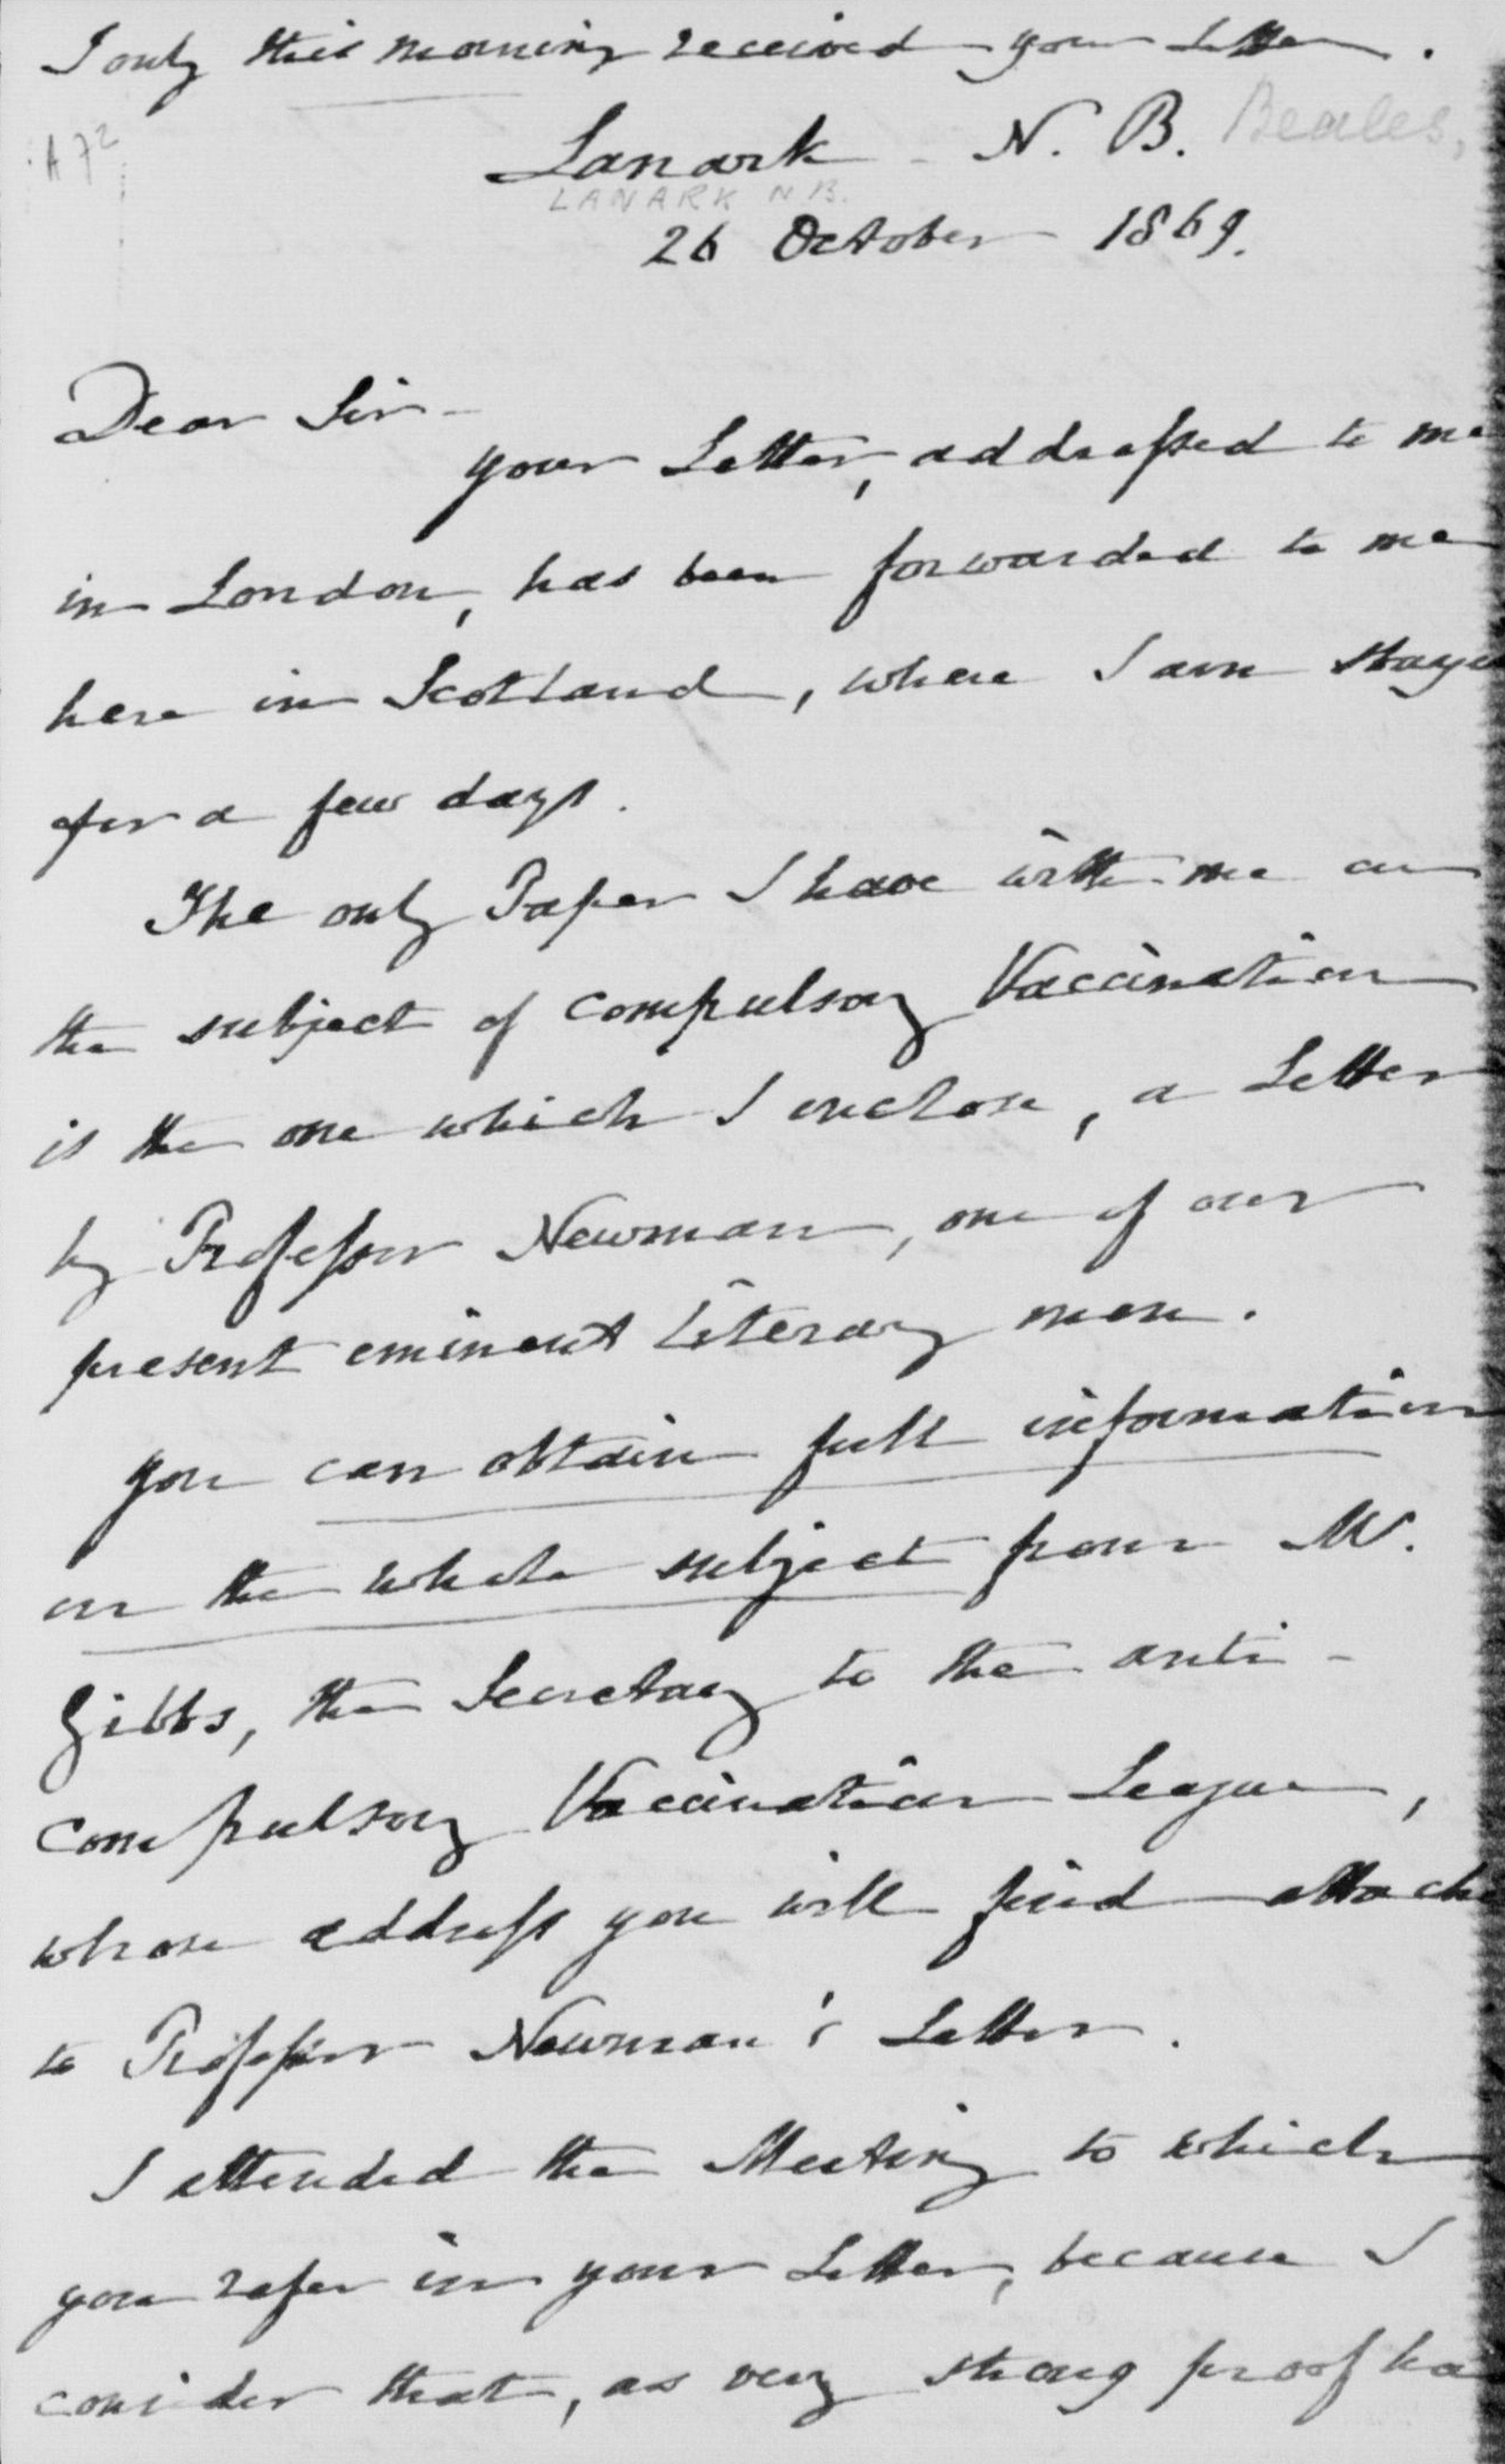 I only this morning received your Letter.
A72
Lanark - N. B. Beales,
LANARK N.B.
26 October 1869.
Dear Sir -
your Letter, addressed to me
in London, has been forwarded to me
here in Scotland, where I am staye
for a few days.
The only Paper I have with me on
the subject of compulsory Vaccination
is the one which I enclose, a Letter
by Professor Newman, one of our
present eminent literary men.
you can obtain full information
on the whole subject from Mr.
Gibbs, the Secretary to the anti-
compulsory Vaccination League,
whose address you will find attache
to Professor Newman's Letter.
I attended the Meeting to which
you refer in your Letter, because I
consider that, as very strong proof ha